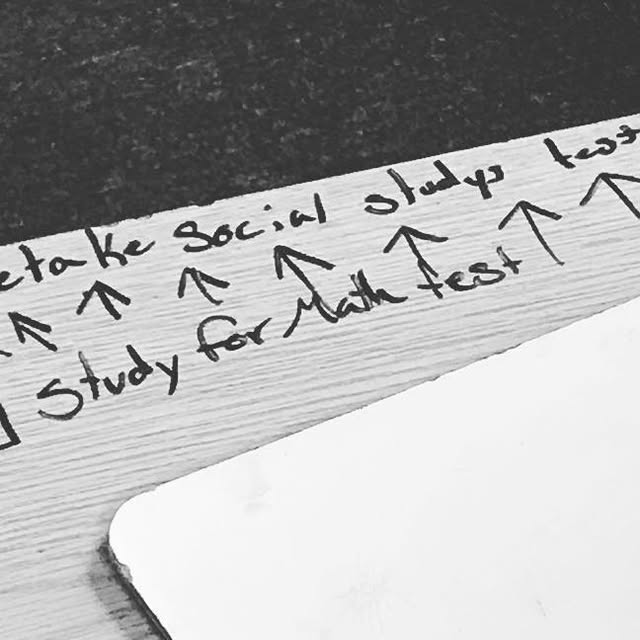 etake Social studys test
Study for Math test